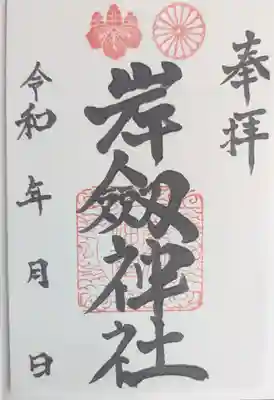 奉拝
岸劔神社
令和 年 月 日